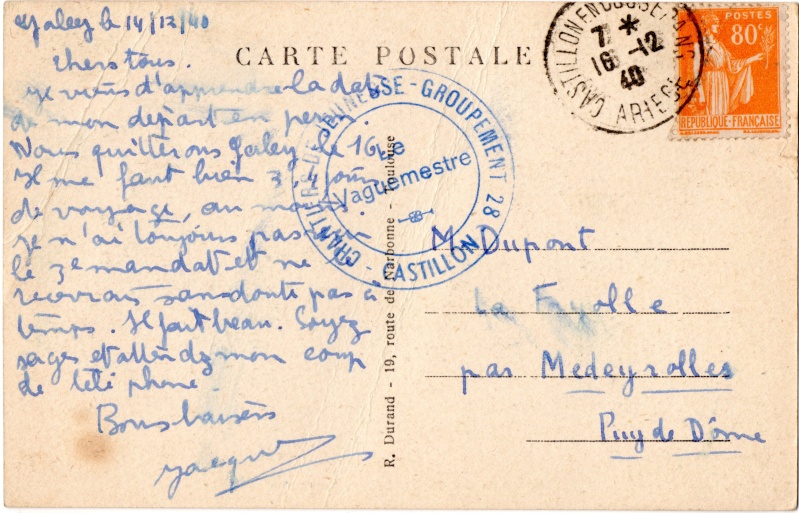 Galey le 14/12/40
CARTE POSTALE
Chers tous.
Je viens d'apprendre la date
de mon départ en perm.
Nous quitterons Galey le 16
Il me faut bien 3, 4 jours
de voyage, au moins.
Je n'ai toujours pas
le 3e mandat et ne
recevrai sans doute pas à
temps. Il fait beau. Soyez
sages et attendez mon coup
de téléphone.
Bons baisers
Jacques
CHANTIERS DE JEUNESSE - GROUPEMENT 28
Le Vaguemestre
- CASTILLON -
R. Durand - 19, route de Narbonne - Toulouse
CASTILLON EN COUSERANS
7 *
16 -12
40
ARIEGE
POSTES
80c
REPUBLIQUE-FRANÇAISE
M. Dupont
La Fayolle
par Medeyrolles
Puy de Dôme